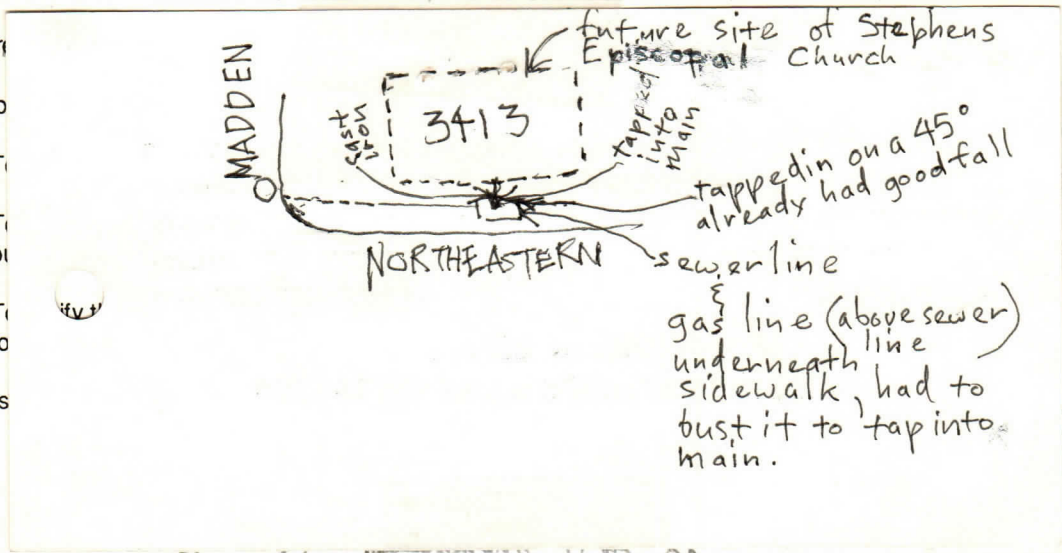 future site of Stephens
Episcopal Church
MADDEN
cast
iron
3413
tapped
into
main
tapped in on a 45°
already had good fall
NORTHEASTERN
sewerline
&
gas line (above sewer
line)
underneath
sidewalk, had to
bust it to tap into
main.